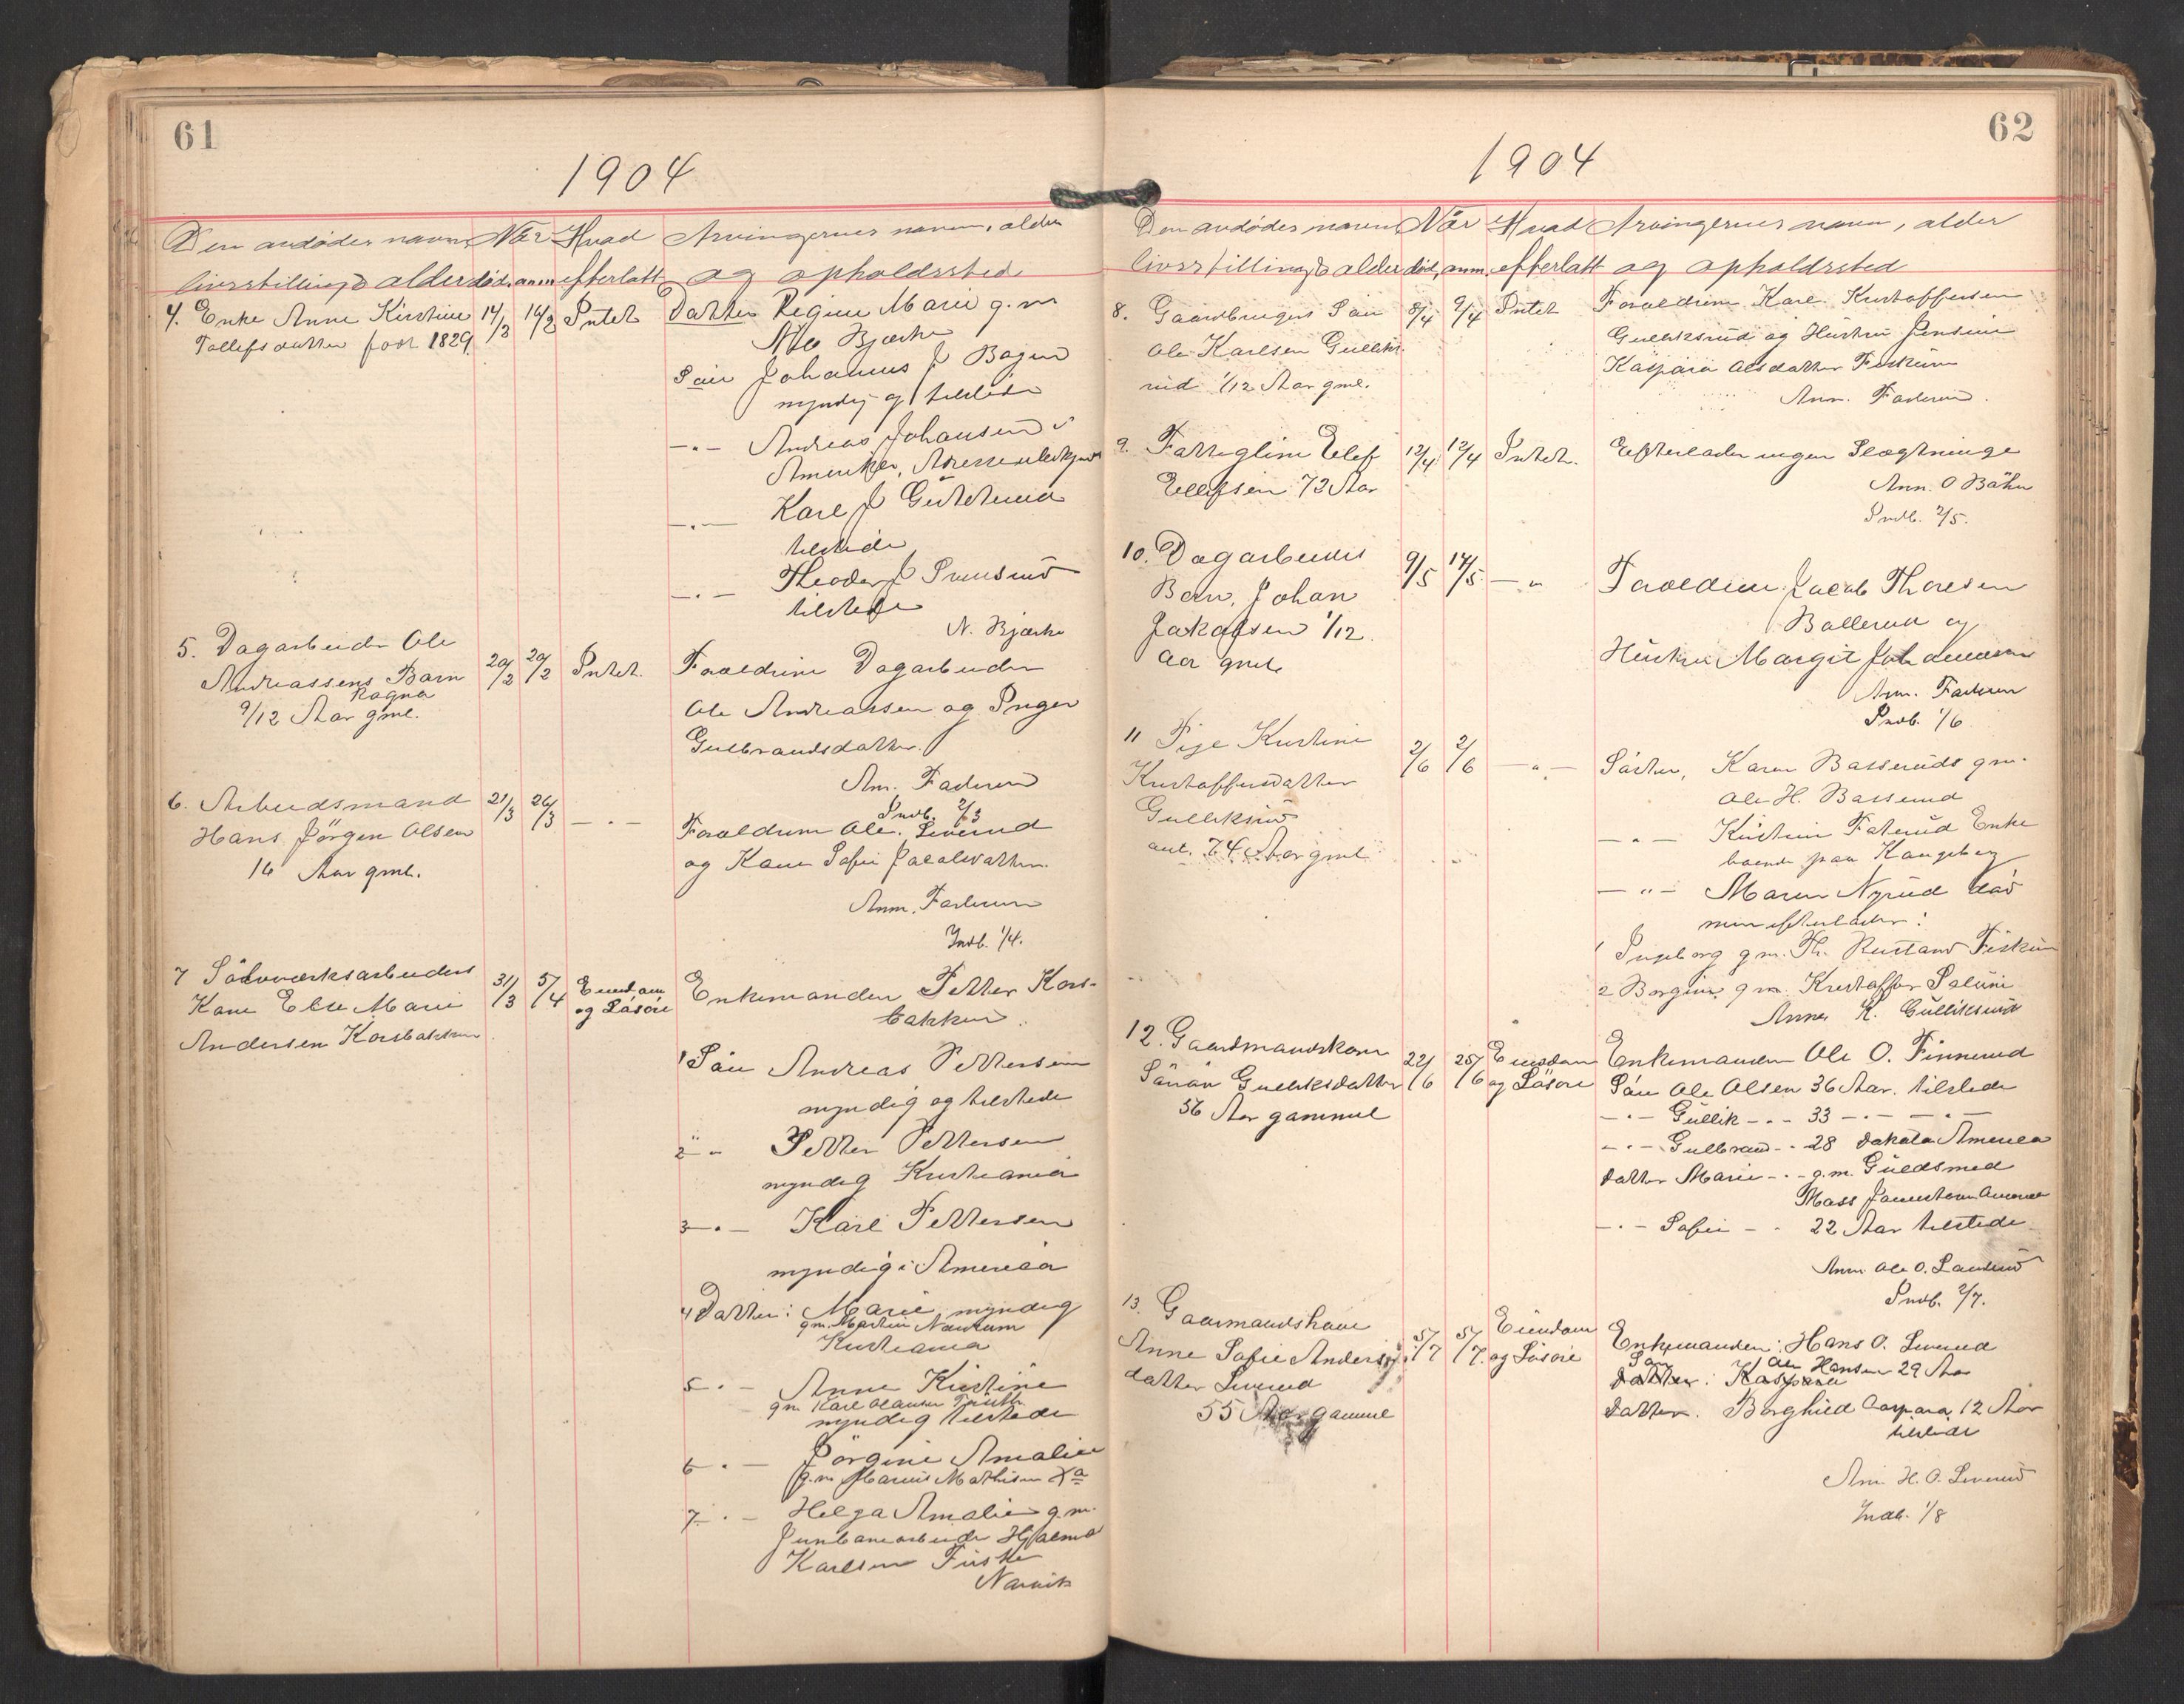 61
1904
Den avdødes navn, Når Hvad Arvingernes navn, alder
livsstilling & alder død, anm. efterlatt og opholdssted
4. Enke Anne Kirstine 14/3 14/3 Intet Datter Regine Marie g.m.
Tollefsdatter født 1829
Bjærke
Søn Johannes J
myndig og tilstede
- " - Andreas Johansen i
Amerika, Adresse ubekjendt
- " - Karl J
tilstede
- " - Theodor J
tilstede
N. Bjærke
5. Dagarbeider Ole
Andreassens Barn 20/2 20/2 Intet. Foreldrene Dagarbeider
Ragna
9/12 Aar gml. Ole Andreassen og Inger
Gulbrandsdatter.
Anm. Faderen
Indb. 2/3
6. Arbeidsmand 21/3 26/3 - " - Foreldrene Ole Leverud
Hans Jörgen Olsen og Karen Sofie Jacobsdatter.
16 Aar gml.
Anm. Faderen
Indb. 1/4.
7 Sölvværksarbeiders 31/3 5/4 Eiendom Enkemanden Petter Kors-
Kone Else Marie og Løsøre bakken.
Andersen Korsbakken
1 Søn Andreas Pettersen
myndig og tilstede
2 " - Petter Pettersen
myndig Kristiania
3 - " - Karl Pettersen
myndig i Amerika
4 Datter: Marie, myndig
gm. Martin
Kristiania
5 - " - Anne Kirstine
gm Karl
myndig tilstede
6 - " - Jörgine Amalie
g.m. Marius Mathisen Kra
7 - " - Helga Amalie g.m.
Jernbanearbeider Hjalmar
Karlsen Fiske
Narvik
62
1904
Den avdødes navn Når Hvad Arvingernes navn, alder
livsstilling & alder død, anm. efterlatt og opholdssted
8. Gaardbrugers Søn 8/4 9/4 Intet Foreldrene Karl Kristoffersen
Ole Karlsen Gulliks- Gulliksrud og Hustru Jensine
rud 1/12 Aar gml. Kaspara Olsdatter Fiskum
Anm. Faderen.
9. Fattiglem Elef 12/4 12/4 Intet. Efterlader ingen Slægtninge
Ellefsen 72 Aar Anm. O Bähn
Indb. 2/5.
10. Dagarbeiders 9/5 14/5 - " Foreldrene Jacob Thoresen
Barn, Johan Ballerud og
Jakobsen 1/12 Hustru Margit
Aar gml. Anm. Faderen
Indb. 1/6
11 Pige Kristine 2/6 2/6 - " - Søster, Karen Basserud gm.
Kristoffersdatter Ole H. Basserud
Gulliksrud - " - Enke
ant. 74 Aar gml boende paa Kongsberg
- " - Maren Nyrud død
men efterlader:
1 Ingeborg g.m. Th. Rustand Fiskum
2 Borgine g.m. Kristoffer
Anm K. Gulliksrud
12. Gaardmandskone 22/6 25/6 Eiendom Enkemanden Ole O. Finnerud
Gulliksdatter og Løsøre Søn Ole Olsen 36 Aar. tilstede
56 Aar gammel - " - Gullik - " - 33 - " - - " -
- " - Gulbrand - " 28 Dakota Amerika
Datter Marie - " - g.m. Guldsmed
Mass Amerika
- " - Sofie - " 22 Aar tilstede
Anm. Ole O.
Indb. 2/7.
13. Gaarmandskone 5/7 5/7. Eiendom Enkemanden: Hans O. Leverud
Anne Sofie Anders- og Løsøre Søn Ole Hansen 29 Aar
Datter: Kaspara
datter Leverud Datter. Borghild Caspara, 12 Aar
55 Aar gammel tilstede
Anm H. O. Leverud
Indb. 1/8